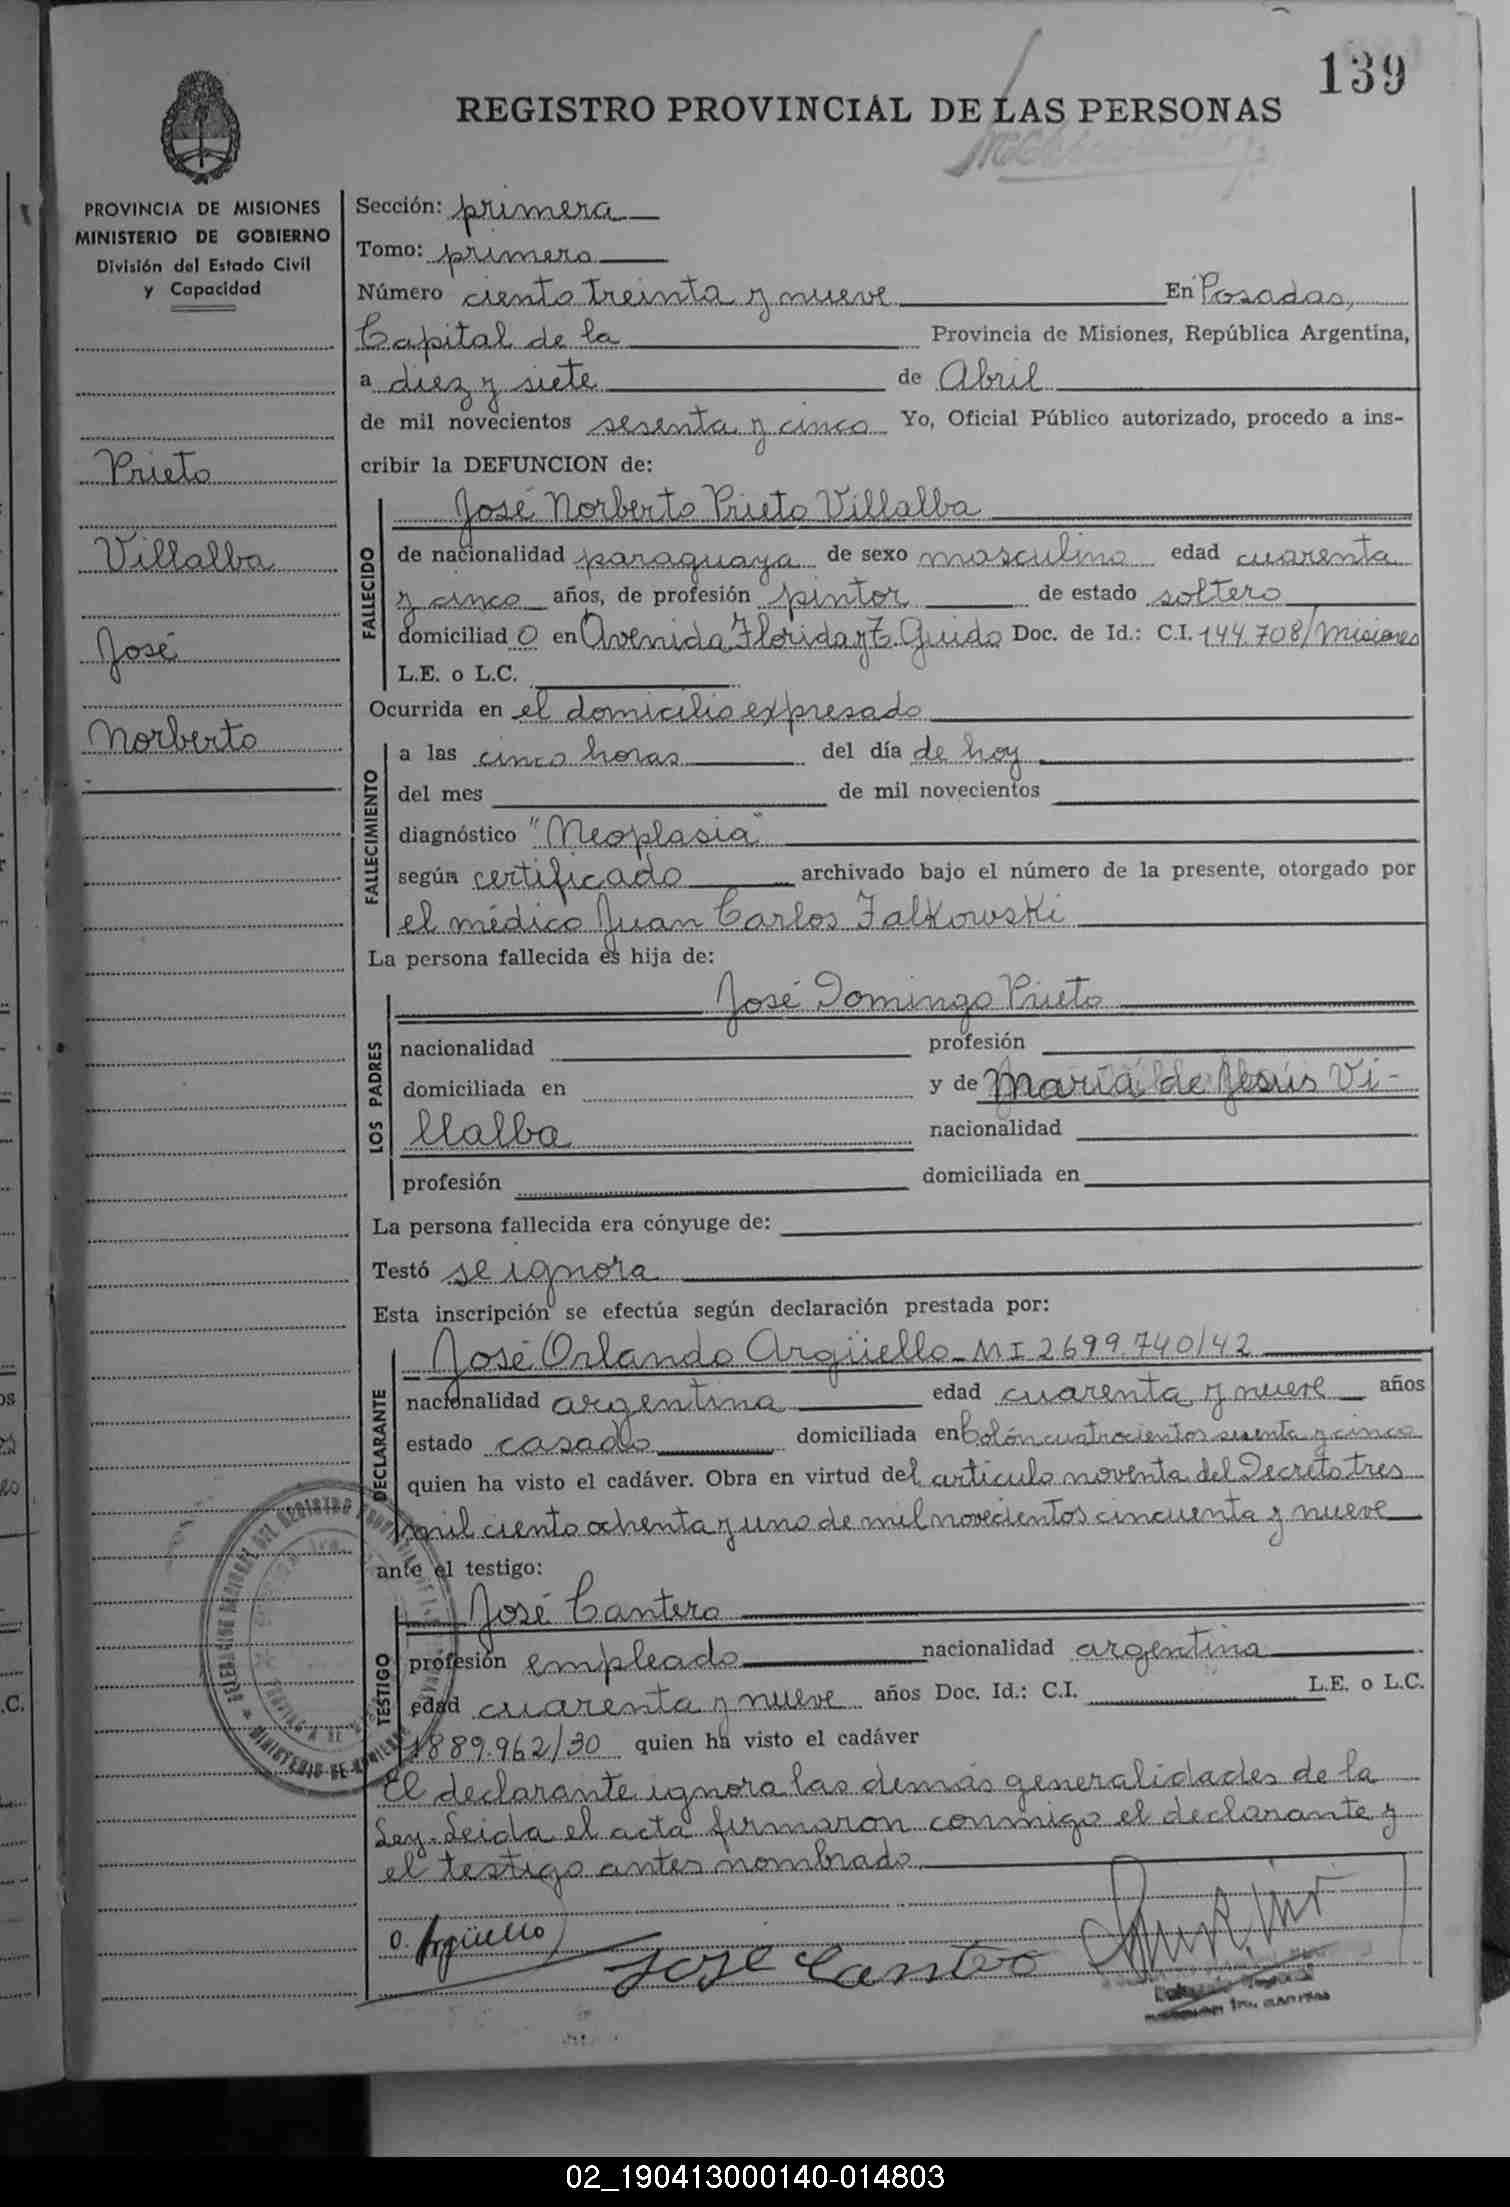 139
REGISTRO PROVINCIAL DE LAS PERSONAS
PROVINCIA DE MISIONES
MINISTERIO DE GOBIERNO
División del Estado Civil
y Capacidad
Prieto
Villalba
José
Norberto
Sección: primera
Tomo: primero
Número ciento treinta y nueve En Posadas,
Capital de la Provincia de Misiones, República Argentina,
a diez y siete de Abril
de mil novecientos sesenta y cinco Yo, Oficial Público autorizado, procedo a ins-
cribir la DEFUNCION de:
FALLECIDO
José Norberto Prieto Villalba
de nacionalidad paraguaya de sexo masculino edad cuarenta
y cinco años, de profesión pintor de estado soltero
domiciliado en Avenida Florida y T. Guido Doc. de Id.: C.I. 144.708/Misiones
L.E. o L.C.
Ocurrida en el domicilio expresado
FALLECIMIENTO
a las cinco horas del día de hoy
del mes de mil novecientos
diagnóstico "Neoplasia"
según certificado archivado bajo el número de la presente, otorgado por
el médico Juan Carlos Falkowski
La persona fallecida es hija de:
LOS PADRES
José Domingo Prieto
nacionalidad profesión
domiciliada en y de María de Jesús Vi-
llalba nacionalidad
profesión domiciliada en
La persona fallecida era cónyuge de:
Testó se ignora
Esta inscripción se efectúa según declaración prestada por:
DECLARANTE
José Orlando Argüello MI 2699.740/42
nacionalidad argentina edad cuarenta y nueve años
estado casado domiciliada en Colón cuatrocientos sesenta y cinco
quien ha visto el cadáver. Obra en virtud del artículo noventa del Decreto tres
mil ciento ochenta y uno de mil novecientos cincuenta y nueve
ante el testigo:
TESTIGO
José Cantero
profesión empleado nacionalidad argentina
edad cuarenta y nueve años Doc. Id.: C.I. L.E. o L.C.
1889.962/30 quien ha visto el cadáver
El declarante ignora las demás generalidades de la
Ley. Leida el acta firmaron conmigo el declarante y
el testigo antes nombrado.
O. Argüello
José Cantero
02_190413000140-014803